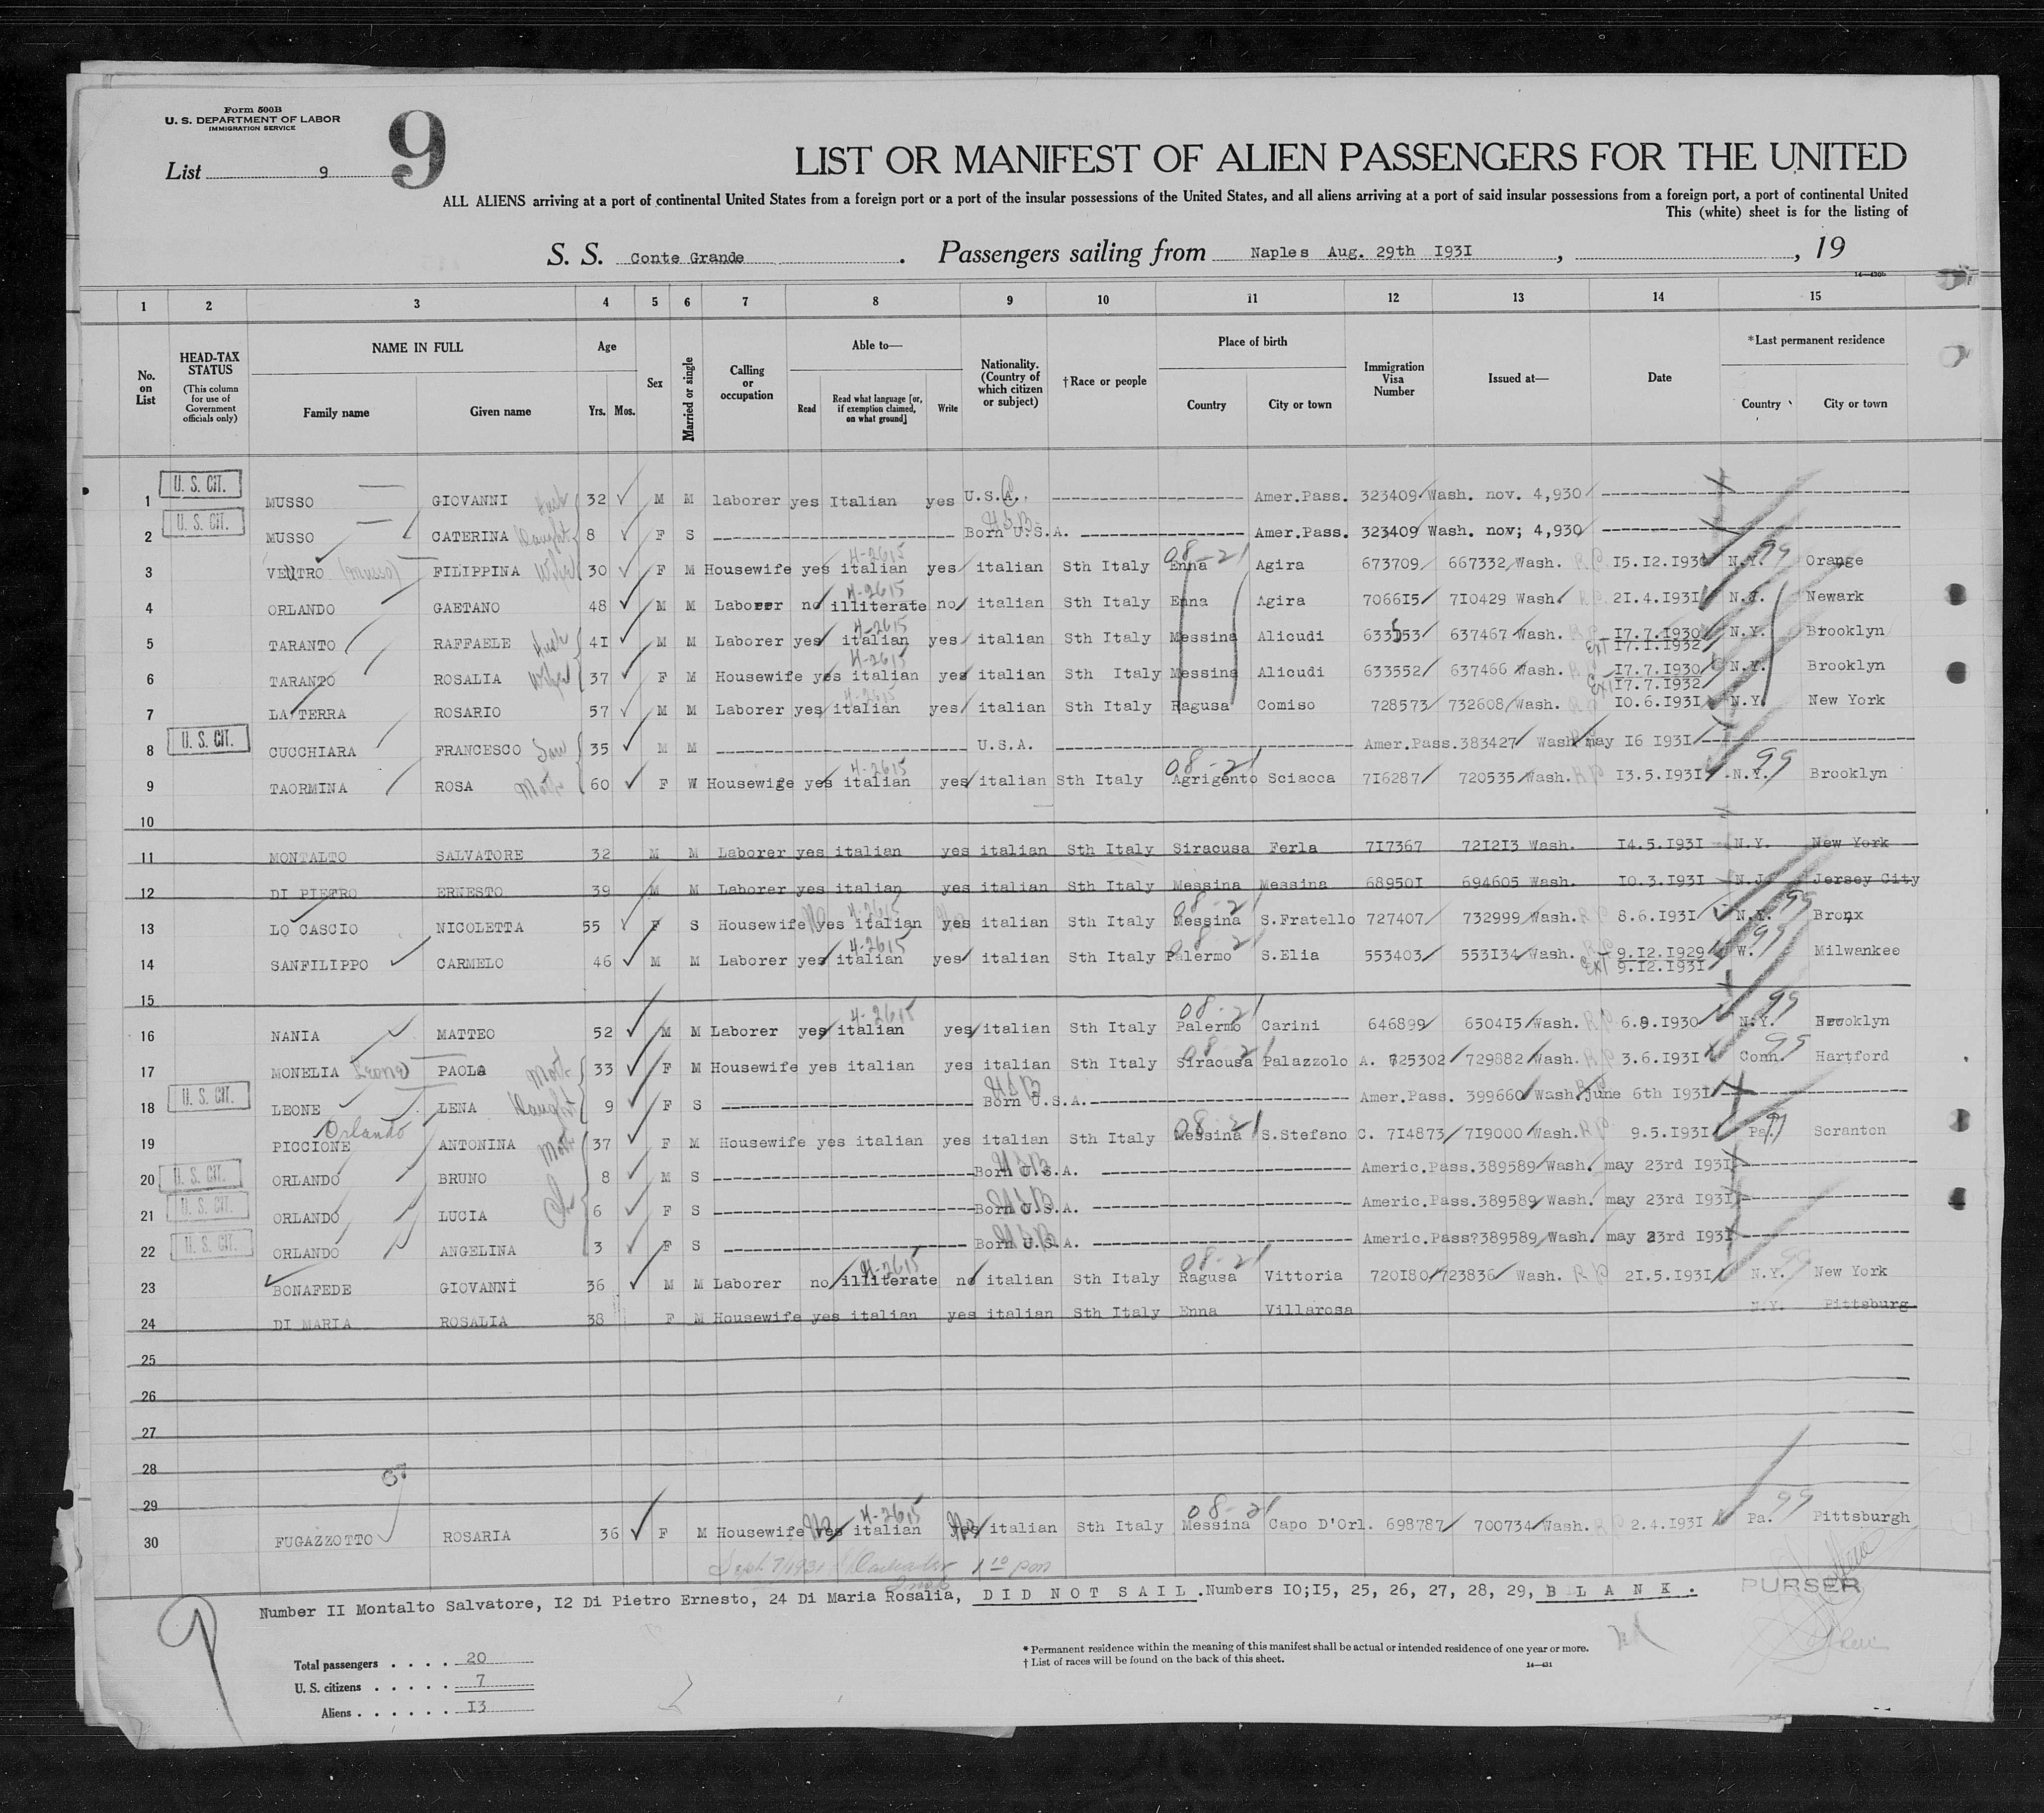 Form 500B
U. S. DEPARTMENT OF LABOR
IMMIGRATION SERVICE
List 9
9
LIST OR MANIFEST OF ALIEN PASSENGERS FOR THE UNITED
ALL ALIENS arriving at a port of continental United States from a foreign port or a port of the insular possessions of the United States, and all aliens arriving at a port of said insular possessions from a foreign port, a port of continental United
This (white) sheet is for the listing of
S. S. Conte Grande . Passengers sailing from Naples Aug. 29th I93I , , 19
14—430b
1 2 3 4 5 6 7 8 9 10 11 12 13 14 15
No. on List
HEAD-TAX STATUS (This column for use of Government officials only)
NAME IN FULL
Family name Given name
Age
Yrs. Mos.
Sex
Married or single
Calling or occupation
Able to—
Read Read what language [or, if exemption claimed, on what ground] Write
Nationality. (Country of which citizen or subject)
†Race or people
Place of birth
Country City or town
Immigration Visa Number
Issued at—
Date
*Last permanent residence
Country City or town
1 U. S. CIT. MUSSO GIOVANNI Husb 32 M M laborer yes Italian yes U.S.A. Amer.Pass. 323409 Wash. nov. 4,930
2 U. S. CIT. MUSSO CATERINA Daught 8 F S Born U.S.A. USB Amer.Pass. 323409 Wash. nov; 4,930
3 VENTRO (Musso) FILIPPINA Wife 30 F M Housewife yes italian 4-2615 yes italian Sth Italy Enna 08-21 Agira 673709 667332 Wash. RP I5.I2.I930 N.Y. 99 Orange
4 ORLANDO GAETANO 48 M M Laborer no illiterate 4-2615 no italian Sth Italy Enna Agira 7066I5 7I0429 Wash. RP 2I.4.I93I N.J. Newark
5 TARANTO RAFFAELE Husb 4I M M Laborer yes italian 4-2615 yes italian Sth Italy Messina Alicudi 633553 637467 Wash. RP I7.7.I930 N.Y. Brooklyn
Ext I7.I.I932
6 TARANTO ROSALIA Wife 37 F M Housewife yes italian 4-2615 yes italian Sth Italy Messina Alicudi 633552 637466 Wash. RP I7.7.I930 N.Y. Brooklyn
Ext I7.7.I932
7 LA TERRA ROSARIO 57 M M Laborer yes italian 4-2615 yes italian Sth Italy Ragusa Comiso 728573 732608 Wash. RP I0.6.I93I N.Y. New York
8 U. S. CIT. CUCCHIARA FRANCESCO Son 35 M M U.S.A. Amer.Pass.383427 Wash may I6 I93I
9 TAORMINA ROSA Moth 60 F W Housewige yes italian 4-2615 yes italian Sth Italy Agrigento 08-21 Sciacca 7I6287 720535 Wash. RP I3.5.I93I N.Y. 99 Brooklyn
10
11 MONTALTO SALVATORE 32 M M Laborer yes italian yes italian Sth Italy Siracusa Ferla 7I7367 72I2I3 Wash. I4.5.I93I N.Y. New York
12 DI PIETRO ERNESTO 39 M M Laborer yes italian yes italian Sth Italy Messina Messina 68950I 694605 Wash. I0.3.I93I N.J. Jersey City
13 LO CASCIO NICOLETTA 55 F S Housewife No yes italian 4-2615 No yes italian Sth Italy Messina 08-21 S.Fratello 727407 732999 Wash. RP 8.6.I93I N.Y. 99 Bronx
14 SANFILIPPO CARMELO 46 M M Laborer yes italian 4-2615 yes italian Sth Italy Palermo 08-21 S.Elia 553403 553I34 Wash. RP 9.I2.I929 W. 99 Milwankee
Ext 9.I2.I93I
15
16 NANIA MATTEO 52 M M Laborer yes italian 4-2615 yes italian Sth Italy Palermo 08-21 Carini 646899 6504I5 Wash. RP 6.9.I930 N.Y. 99 Brooklyn
17 MONELIA Leone PAOLA Moth 33 F M Housewife yes italian yes italian Sth Italy Siracusa 08-21 Palazzolo A. 725302 729882 Wash. RP 3.6.I93I Conn. 99 Hartford
18 U. S. CIT. LEONE LENA Daught 9 F S Born U.S.A. USB Amer.Pass. 399660 Wash. June 6th I93I
19 PICCIONE Orlando ANTONINA Moth 37 F M Housewife yes italian yes italian Sth Italy Messina 08-21 S.Stefano C. 7I4873 7I9000 Wash. RP 9.5.I93I Pa. 99 Scranton
20 U. S. CIT. ORLANDO BRUNO 8 M S Born U.S.A. USB Americ.Pass.389589 Wash. may 23rd I93I
21 U. S. CIT. ORLANDO LUCIA Ch 6 F S Born U.S.A. USB Americ.Pass.389589 Wash. may 23rd I93I
22 U. S. CIT. ORLANDO ANGELINA 3 F S Born U.S.A. USB Americ.Pass?389589 Wash. may 23rd I93I
23 BONAFEDE GIOVANNI 36 M M Laborer no illiterate 4-2615 no italian Sth Italy Ragusa 08-21 Vittoria 720I80 723836 Wash. RP 2I.5.I93I N.Y. 99 New York
24 DI MARIA ROSALIA 38 F M Housewife yes italian yes italian Sth Italy Enna Villarosa N.Y. Pittsburg
25
26
27
28
29
30 FUGAZZOTTO ROSARIA 36 F M Housewife No yes italian 4-2615 No yes italian Sth Italy Messina 08-21 Capo D'Orl. 698787 700734 Wash. RP 2.4.I93I Pa. 99 Pittsburgh
Sept 7/1931
Number II Montalto Salvatore, I2 Di Pietro Ernesto, 24 Di Maria Rosalia, D I D N O T S A I L .Numbers I0;I5, 25, 26, 27, 28, 29, B L A N K .
PURSER
Total passengers . . . . 20
U. S. citizens . . . . . 7
Aliens . . . . . . I3
* Permanent residence within the meaning of this manifest shall be actual or intended residence of one year or more.
† List of races will be found on the back of this sheet.
14—431